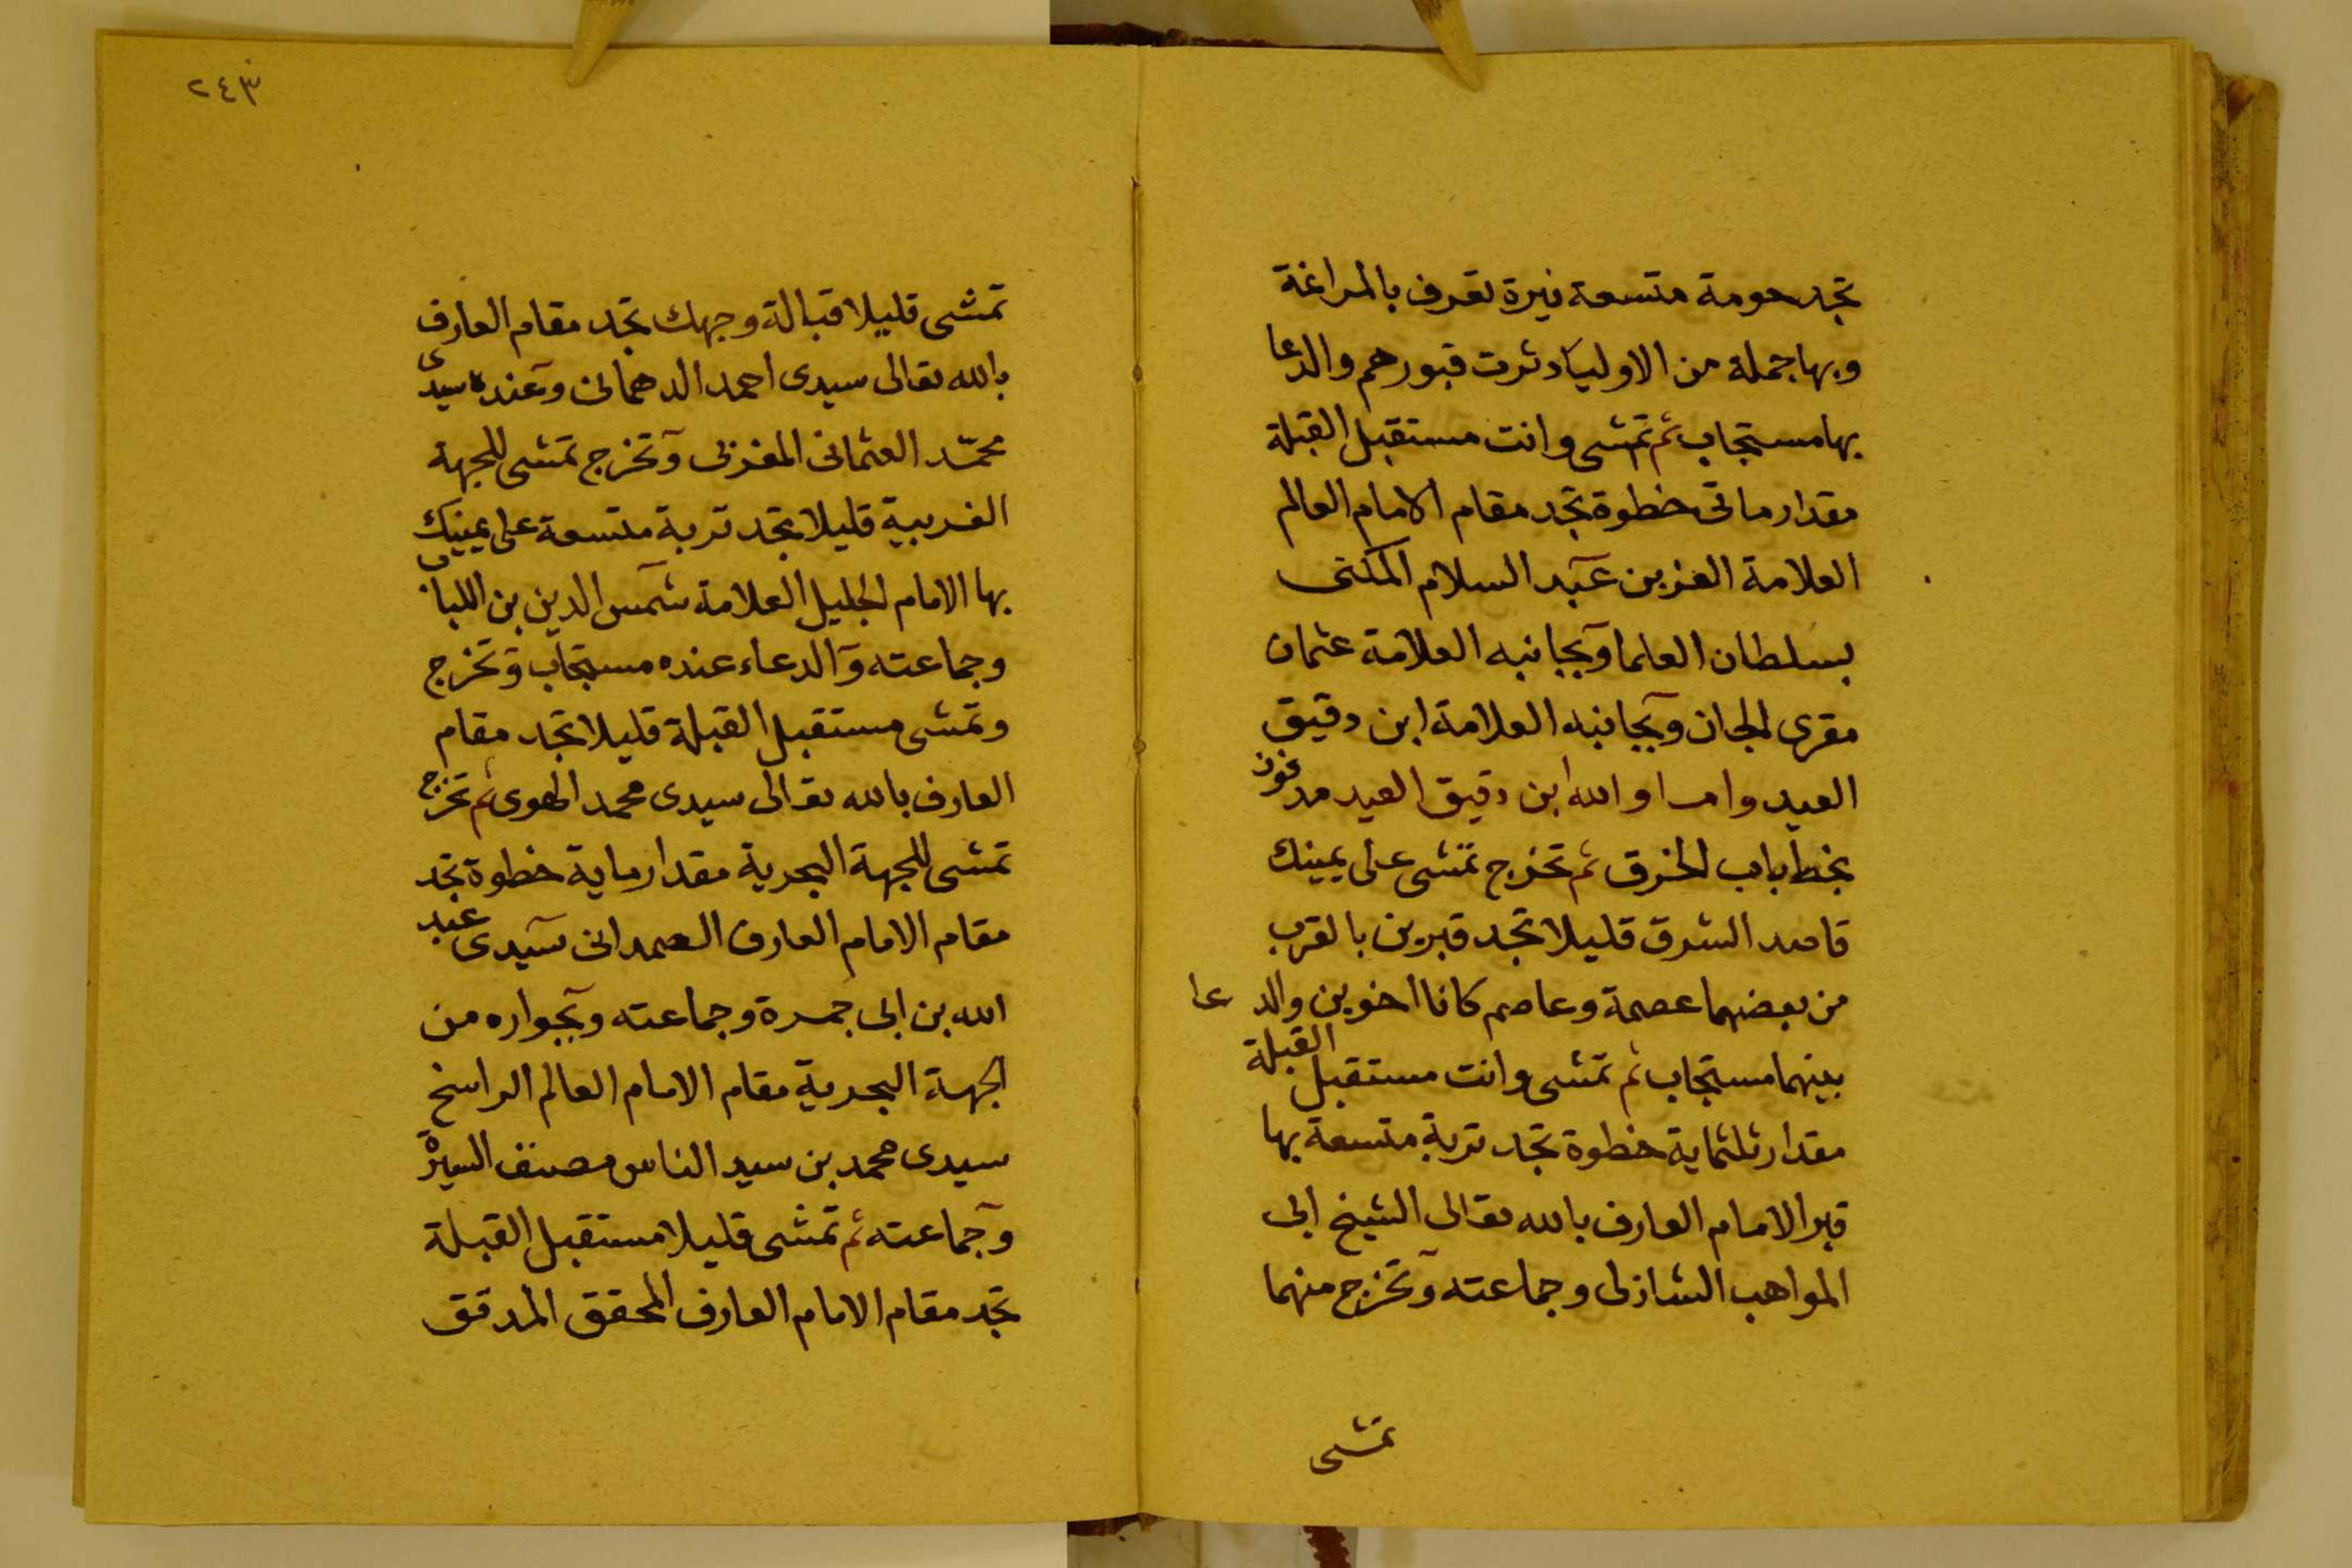 تجد حومة متسعة نيرة تعرف بالمراغة
وبها جملة من الاوليا دثرت قبورهم والدعا
بها مستجاب ثم تمشى وانت مستقبل القبلة
مقدار ماتى خطوة تجد مقام الامام العالم
العلامة العز بن عبد السلام المكنى
بسلطان العلما وبجانبه العلامة عثمان
مقرى الجان وبجانبه العلامة ابن دقيق
العيد وام اوالله ابن دقيق العيد مدفون
بخط باب الخرق ثم تخرج تمشى على يمينك
قاصد الشرق قليلا تجد قبرين بالقرب
من بعضهما عصمة وعاصم كانا اخوين والدعا
بينهما مستجاب ثم تمشى وانت مستقبل القبلة
مقدار ثلثماية خطوة تجد تربة متسعة بها
قبر الامام العارف بالله تعالى الشيخ ابى
المواهب الشازلى وجماعته وتخرج منهما
تمشى
٢٤٣
تمشى قليلا قبالة وجهك تجد مقام العارف
بالله تعالى سيدى احمد الدهمانى وعنده سيدى
محمد العثمانى المغربى وتخرج تمشى للجهة
الغربية قليلا تجد تربة متسعة على يمينك
بها الامام الجليل العلامة شمس الدين بن اللبان
وجماعته والدعاء عنده مستجاب وتخرج
وتمشى مستقبل القبلة قليلا تجد مقام
العارف بالله تعالى سيدى محمد الهوى ثم تخرج
تمشى للجهة البحرية مقدار ماية خطوة تجد
مقام الامام العارف الصمدانى سيدى عبد
الله بن ابى جمرة وجماعته وبجواره من
الجهة البحرية مقام الامام العالم الراسخ
سيدى محمد بن سيد الناس مصنف السيرة
وجماعته ثم تمشى قليلا مستقبل القبلة
تجد مقام الامام العارف المحقق المدقق